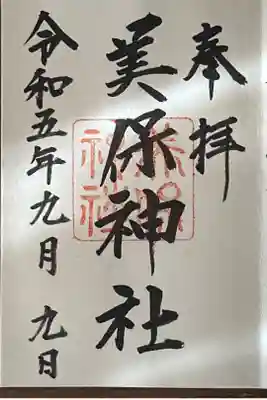 奉拝
美保神社
令和五年九月九日